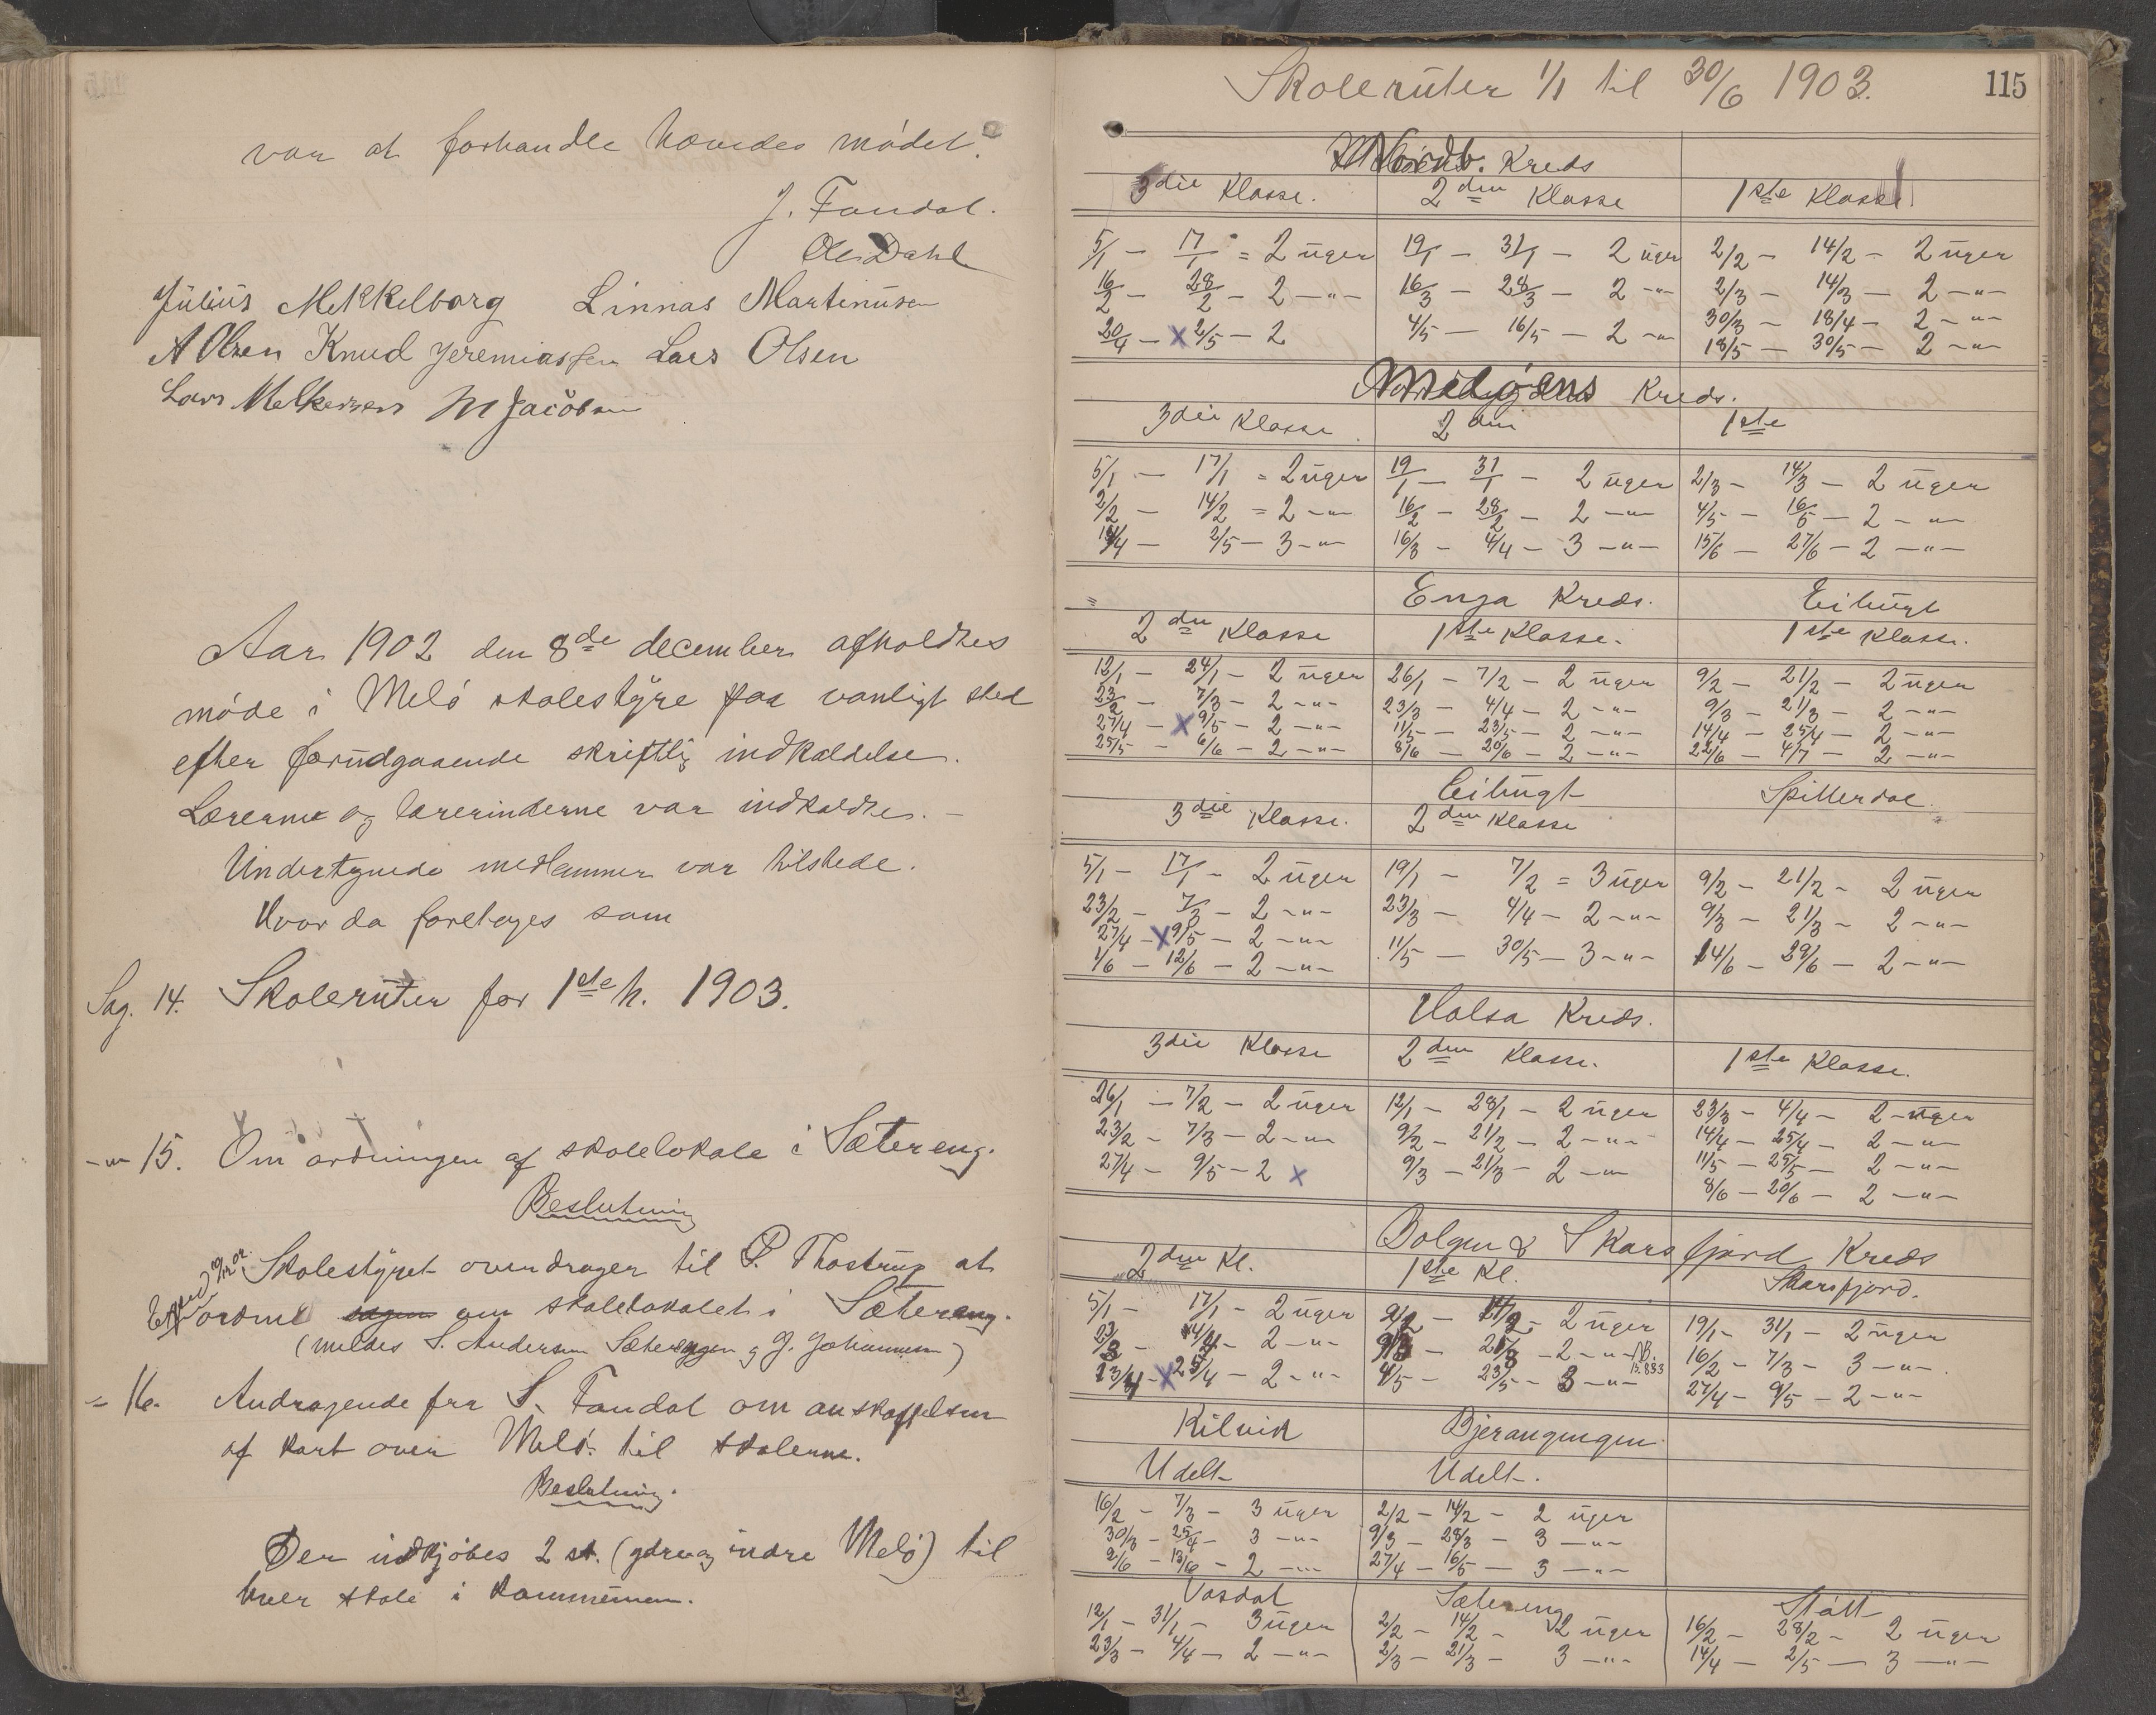 var at forhandle hævedes mødet.
J. Fondal.
Ole Dahl
Julius Mekkelborg Linnas Martinusen
A Olsen Knud Jeremiassen Lars Olsen
Lars Melkersen M Jacobsen
Aar 1902 den 8de december afholdtes
møde i Melø skolestyre paa vanligt sted
efter forudgaaende skriftlig indkaldelse.
Lærerne og lærerinderne var indkaldte. -
Undertegnede medlemmer var tilstede.
Hvor da foretoges som
Sag. 14. Skoleruter for 1ste h. 1903.
-"- 15. Om ordningen af skolelokale i Sætereng.
Beslutning
Skolestyret overdrager til P. Thostrup at
ordne sagen om skolelokalet i Sætereng.
(meldes S. Andersen Sæterengen og J. Johannesen)
= 16. Andragende fra S. Fondal om anskaffelsen
af kart over Melø til skolerne.
Beslutning.
Der indkjøbes 2 st. (ydre og indre Melø) til
hver skole i kommunen.
Skoleruter 1/1 til 30/6 1903.
115
Nordv. Kreds
3die Klasse. 2den Klasse 1ste Klasse
5/1 - 17/1 = 2 uger 19/1 - 31/1 - 2 uger 2/2 - 14/2 - 2 uger
16/2 - 28/2 - 2 -"- 16/3 - 28/3 - 2 -"- 2/3 - 14/3 - 2 -"-
20/4 - x 2/5 - 2 4/5 - 16/5 - 2 -"- 30/3 - 18/4 - 2 -"-
18/5 - 30/5 - 2 -"-
Meløens Kreds.
3die Klasse 2den 1ste
5/1 - 17/1 = 2 uger 19/1 - 31/1 - 2 uger 2/3 - 14/3 - 2 uger
2/2 - 14/2 = 2 -"- 16/2 - 28/2 - 2 -"- 4/5 - 16/5 - 2 -"-
14/4 - 2/5 - 3 -"- 16/3 - 4/4 - 3 -"- 15/6 - 27/6 - 2 -"-
Enga Kreds. Eibugt
2den Klasse 1ste Klasse. 1ste Klasse.
12/1 - 24/1 - 2 uger 26/1 - 7/2 - 2 uger 9/2 - 21/2 - 2 uger
23/2 - 7/3 - 2 -"- 23/3 - 4/4 - 2 -"- 9/3 - 21/3 - 2 -"-
27/4 - x 9/5 - 2 -"- 11/5 - 23/5 - 2 -"- 14/4 - 25/4 - 2 -"-
25/5 - 6/6 - 2 -"- 8/6 - 20/6 - 2 -"- 22/6 - 4/7 - 2 -"-
Eibugt Spilderdal.
3die Klasse. 2den Klasse
5/1 - 17/1 - 2 uger 19/1 - 7/2 = 3 uger 9/2 - 21/2 - 2 uger
23/2 - 7/3 - 2 -"- 23/3 - 4/4 - 2 -"- 9/3 - 21/3 - 2 -"-
27/4 - x 9/5 - 2 -"- 11/5 - 30/5 - 3 -"- 14/6 - 29/6 - 2 -"-
1/6 - 12/6 - 2 -"-
Halsa Kreds.
3die Klasse 2den Klasse. 1ste Klasse.
26/1 - 7/2 - 2 uger 12/1 - 28/1 - 2 uger 23/3 - 4/4 - 2 - uger
23/2 - 7/3 - 2 -"- 9/2 - 21/2 - 2 -"- 14/4 - 25/4 - 2 -"-
27/4 - 9/5 - 2 x 9/3 - 21/3 - 2 -"- 11/5 - 25/5 - 2 -"-
8/6 - 20/6 - 2 -"-
Bolgen & Skarsfjord Kreds
2den Kl. 1ste Kl. Skarsfjord.
5/1 - 17/1 - 2 uger 9/2 - 21/2 - 2 uger 19/1 - 31/1 - 2 uger
23/3 - 4/4 - 2 -"- 9/3 - 21/3 - 2 -"- NB. 16/2 - 7/3 - 3 -"-
13/4 - x 25/4 - 2 -"- 4/5 - 23/5 - 3 -"- 27/4 - 9/5 - 2 -"-
Kilvik Bjerangingen
Udelt Udelt.
16/2 - 7/3 - 3 uger 2/2 - 14/2 - 2 uger
30/3 - 25/4 - 3 -"- 9/3 - 28/3 - 3 -"-
2/6 - 13/6 - 2 -"- 27/4 - 16/5 - 3 -"-
Vasdal Sætereng Støtt
12/1 - 31/1 - 3 uger 2/2 - 14/2 - 2 uger 16/2 - 28/2 - 2 uger
23/3 - 4/4 - 2 -"- 2/3 - 21/3 - 3 -"- 14/4 - 2/5 - 3 -"-